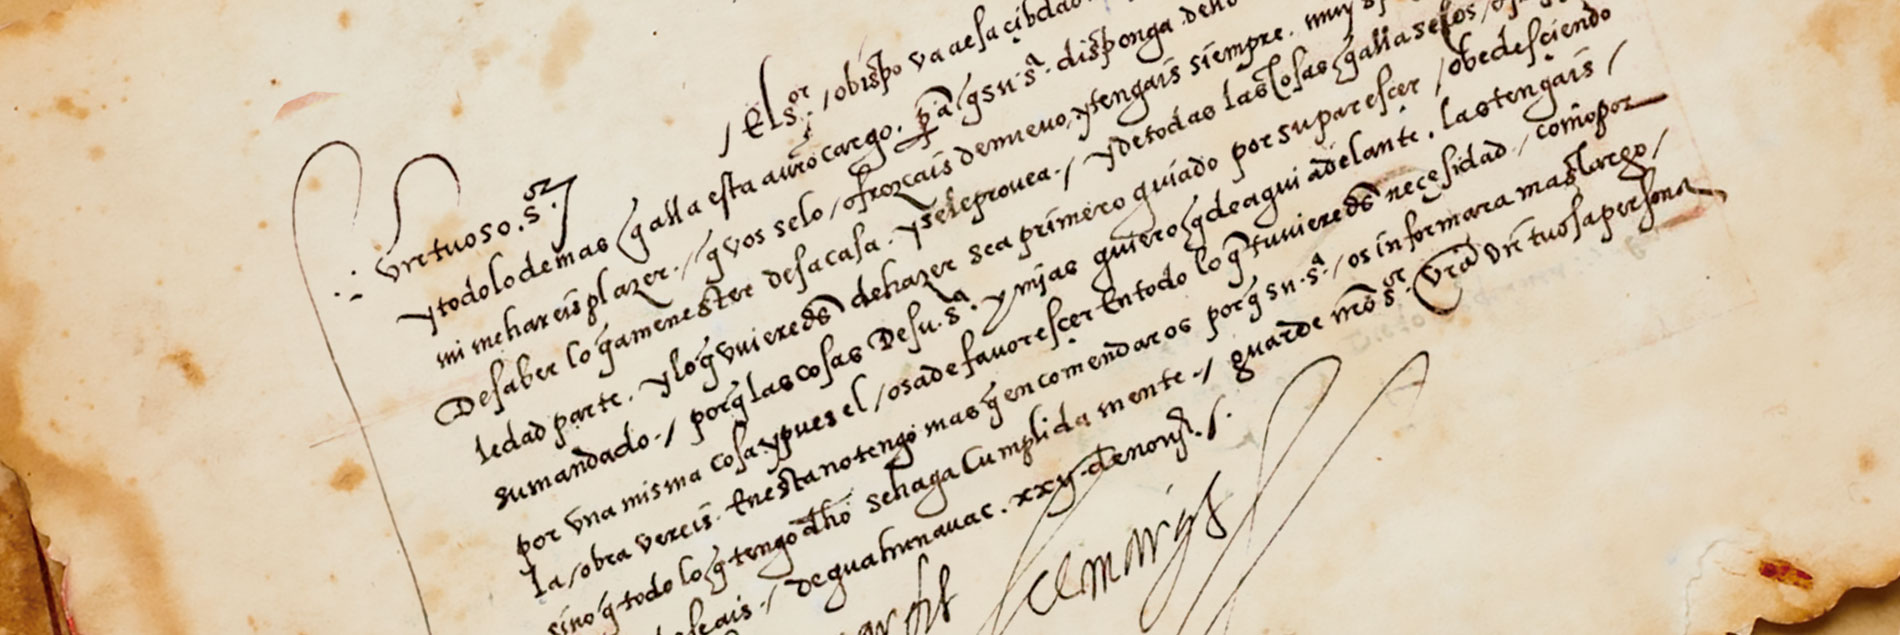 virtuoso .s.or
/ El s.or / obispo va a esa çibdad
y todo lo demas q̃ alla esta a vr̃o cargo. p̃a q̃ su .s.a disponga dello
mi me hareis plazer. / q̃ vos selo / ofrozcais de nuevo. y tengais siempre. muy
De saber lo q̃ a menester desa casa. y se le provea. / y de todas las cosas q̃ alla se
le dad parte. y lo q̃ vuieredes de hazer sea primero guiado por su paresçer / obedesciendo
su mandado. / porq̃ las cosas De su .s.a y mias quiero q̃ de aqui adelante. las tengais /
por vna misma cosa. y pues el / os a de favoresçer En todo lo q̃ tuvieredes neçesidad / como por
la / obra vereis. En esta no tengo mas q̃ encomendaros porq̃ su .s.a / os informara mas largo /
sino q̃ todo lo q̃ tengo dho se haga Cumplidamente. / guarde nr̃o s.or vr̃a virtuosa persona
/ de guahunavac. xxv de novi.e /.
el marq̃s